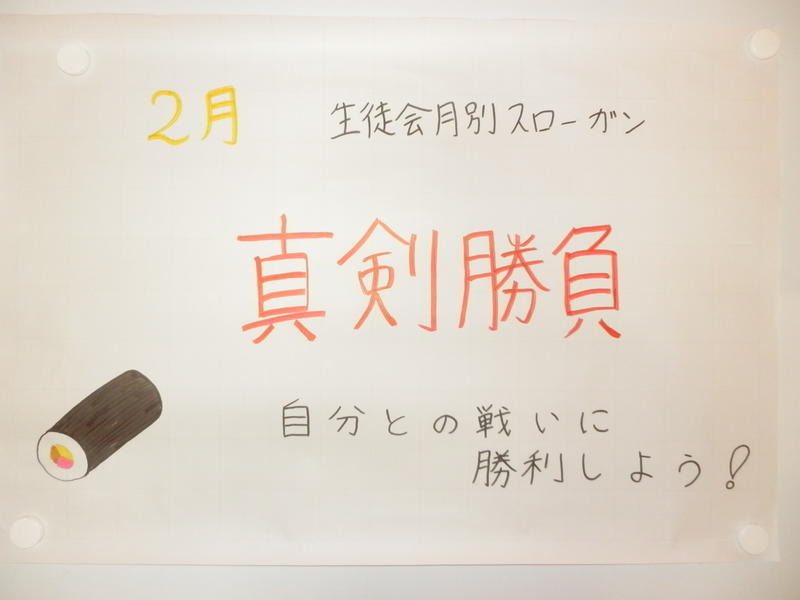 2月
生徒会月別スローガン
真剣勝負
自分との戦いに
勝利しよう!